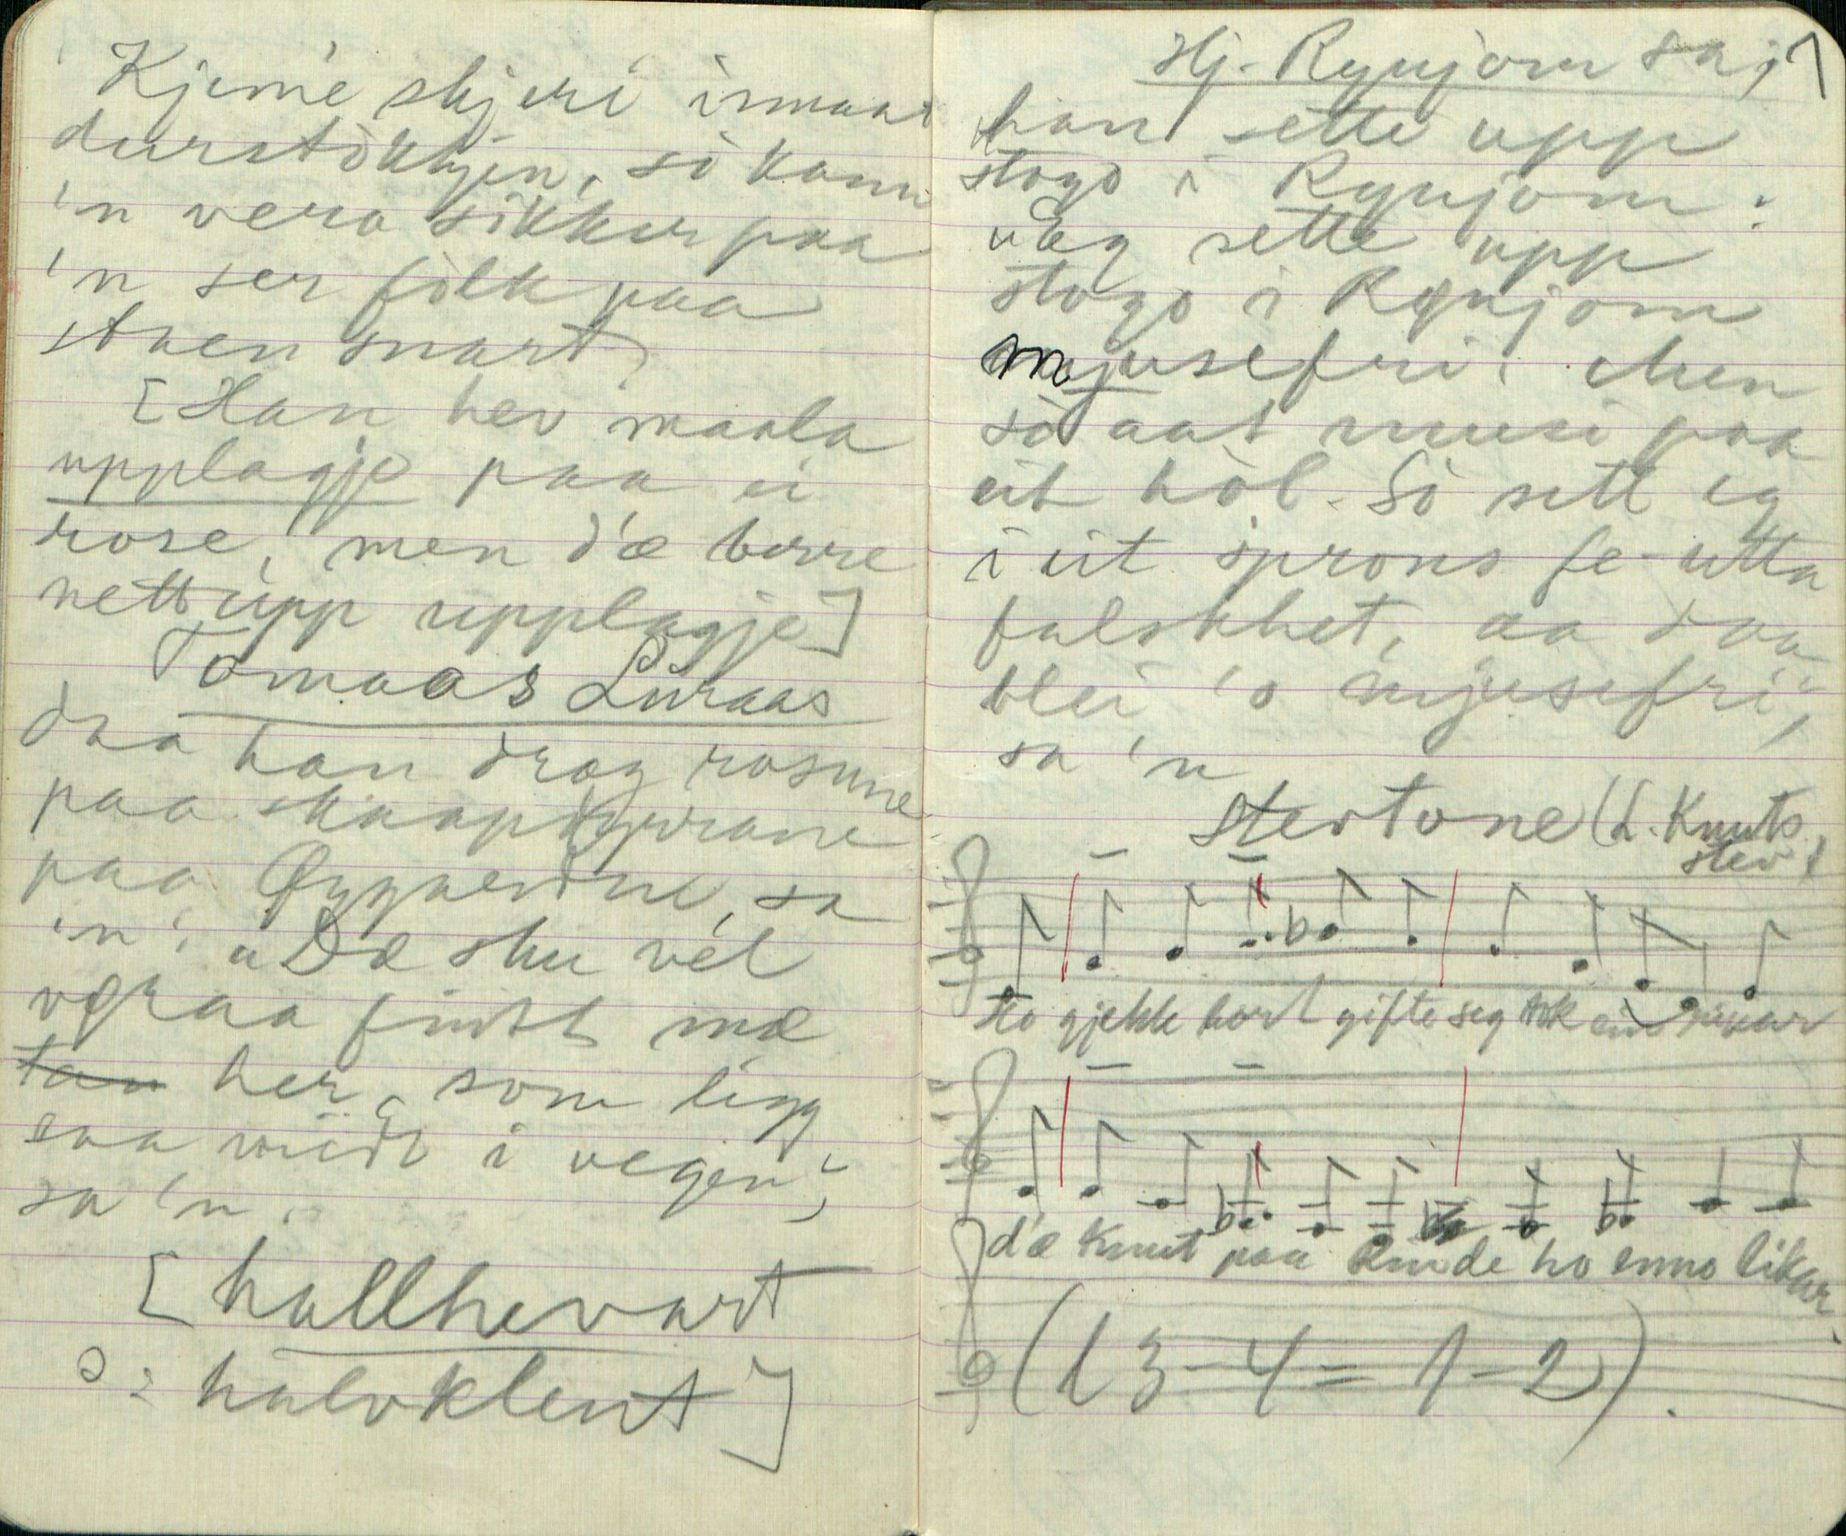 Kjem'e skjeri innaat
durstòkkjen, sò kann
'n vera sikker paa
'n ser fòlk paa
staen snart.
[Han hev maala
upplagje paa ei
rose, men d'æ berre
nettupp upplagje]
Tomaas Luraas
daa han drog rosune
paa skaaphyrrane
paa Øygaerdne, sa
'n: "Dæ sku vèl
vera finbt mæ
her, som ligg
saa midt i vegen",
sa 'n.
[hallhevart
ɔ: halvklent]
Hj. Rynjom sa,
han sette upp
stogo i Rynjom:
"Eg sette upp
stogo i Rynjom
mjusefri. Men
sò aat musi paa
eit hòl. Sò sett eg
i eit sprons fe-utta
falskhet, aa daa
blei 'o mjusefri",
sa 'n
Stevtone (L. Knuts
stev)
Ho gjekk bort gifte seg fekk ein rikar
d'æ Knut paa Rinde ho enno likar.
(l 3-4 = 1-2).